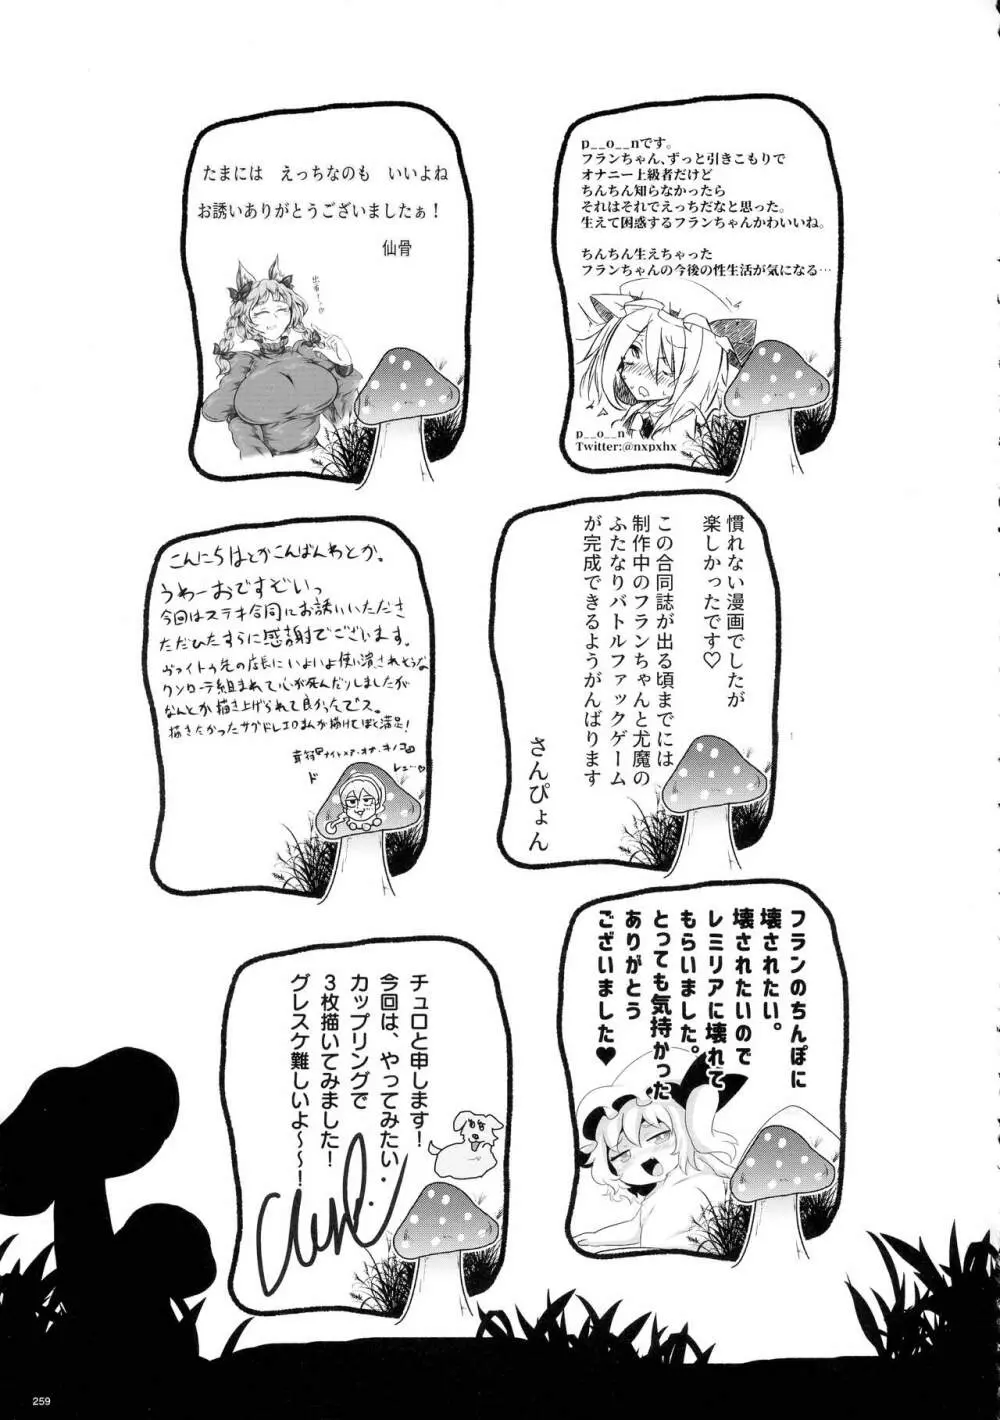 p__o__nです。
フランちゃん、ずっと引きこもりで
オナニー上級者だけど
ちんちん知らなかったら
それはそれでえっちだなと思った。
生えて困惑するフランちゃんかわいいね。
ちんちん生えちゃった
フランちゃんの今後の性生活が気になる…
p__o__n
Twitter:@nxpxhx
たまには　えっちなのも　いいよね
お誘いありがとうございましたぁ！
仙骨
慣れない漫画でしたが
楽しかったです♡
この合同誌が出る頃までには
制作中のフランちゃんと尤魔の
ふたなりバトルファックゲーム
が完成できるようがんばります
さんぴょん
こんにちはとかこんばんわとか。
うわーおですぞいっ
今回はステキ合同にお誘いいただき
ただひたすらに感謝でございます。
組まれて心が死んだりしましたが
なんとか描き上げられて良かったでス。
フランのちんぽに
壊されたい。
壊されたいので
レミリアに壊れて
もらいました。
とっても気持かった
ありがとう
ございました♥
チュロと申します！
今回は、やってみたい
カップリングで
3枚描いてみました！
グレスケ難しいよ～～！
259